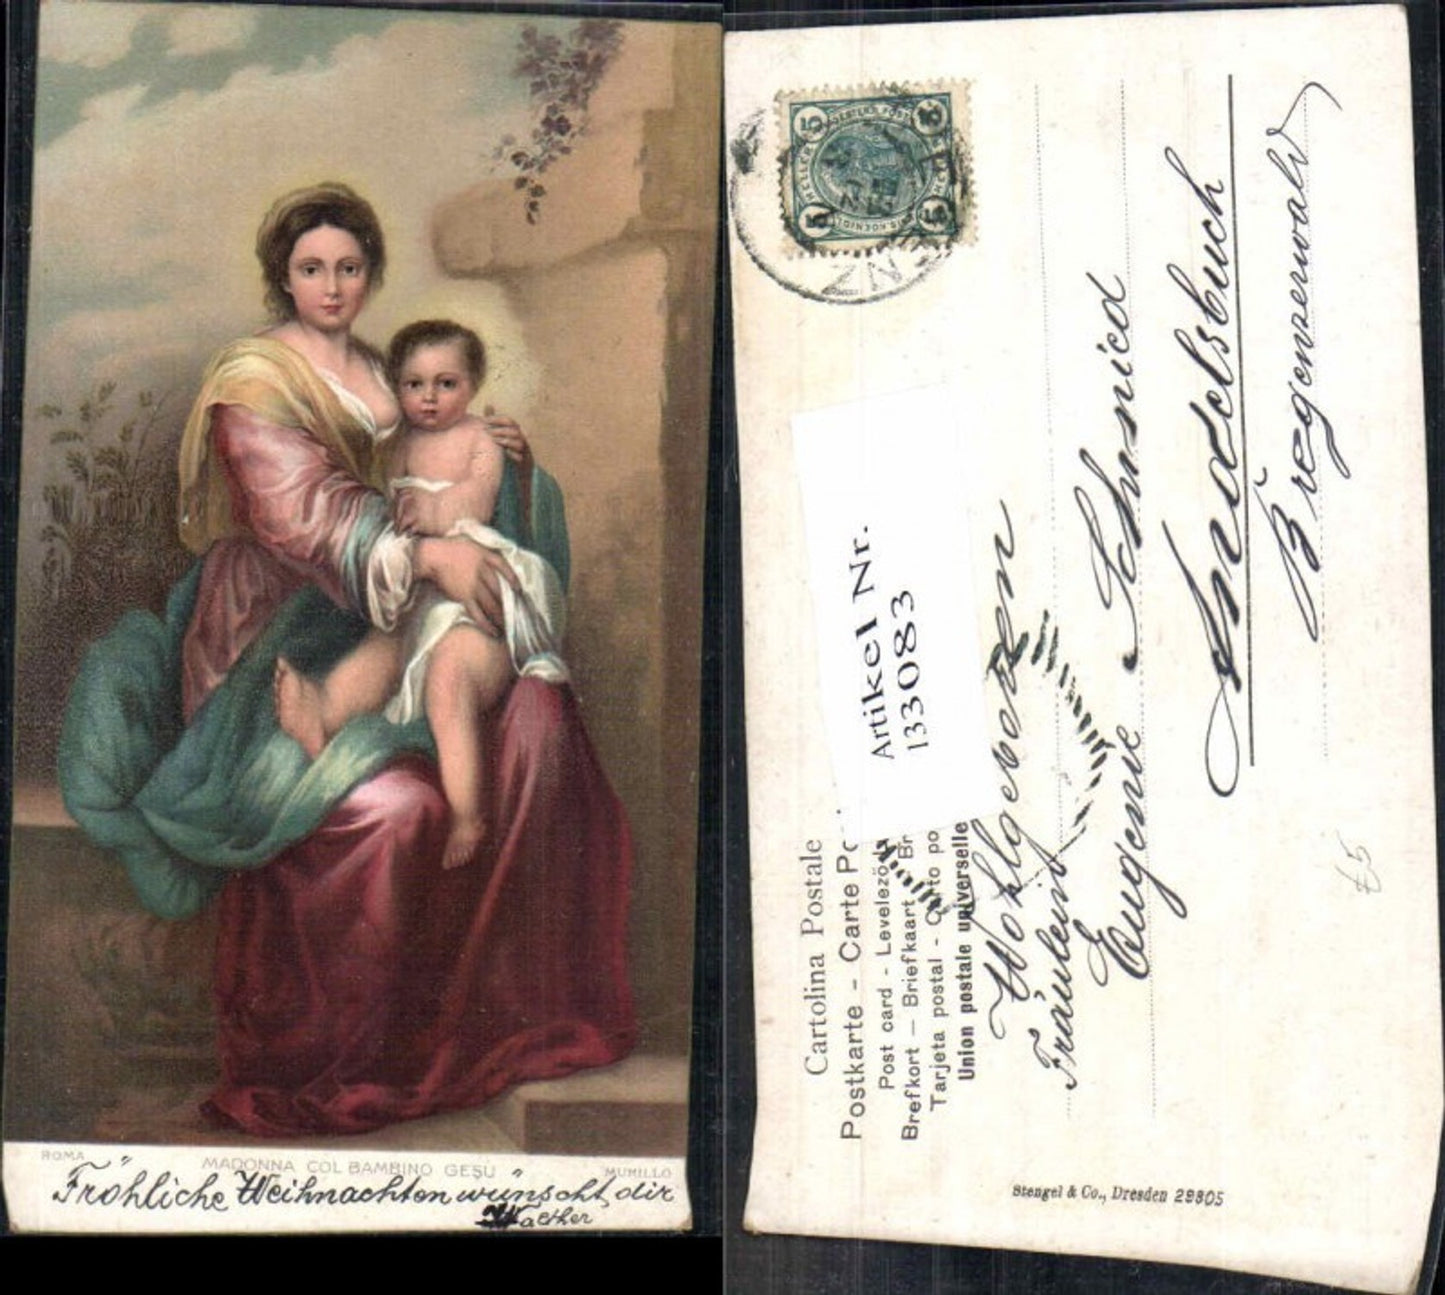 ROMA
MADONNA COL BAMBINO GESU
MURILLO
Fröhliche Weihnachten wünscht dir
Walther
5 5
5 5
Artikel Nr.
133083
Cartolina Postale
Postkarte - Carte Po
Post card - Levelező
Brefkort — Briefkaart Br
Tarjeta postal - po
Union postale universelle
Wohlgeboren
Fräulein
Eugenie Schmied
Andelsbuch
Bregenzerwald
Stengel & Co., Dresden 29805